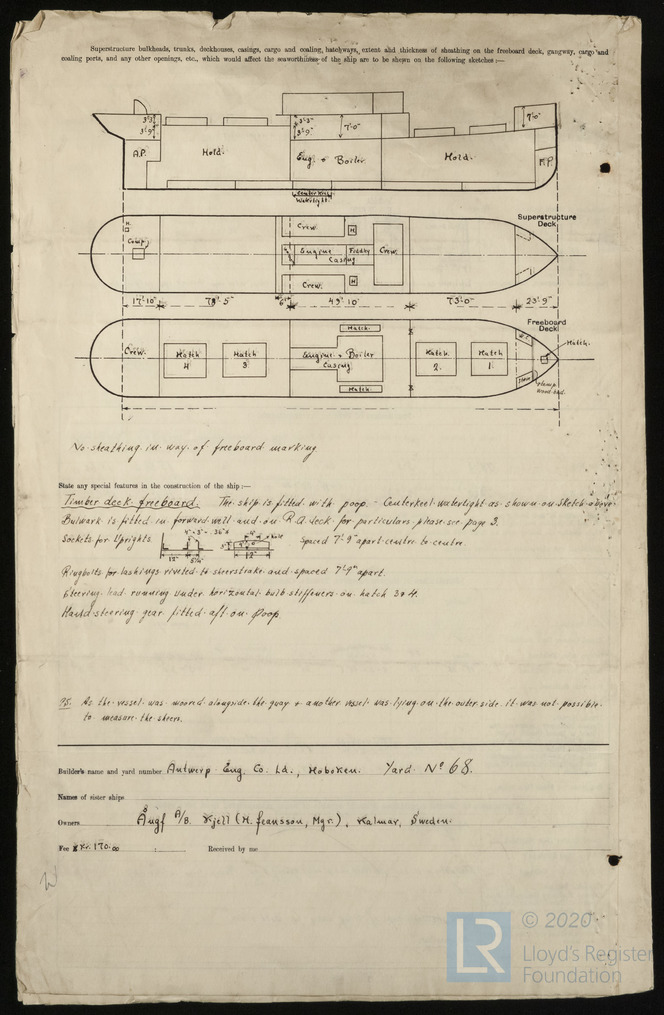 Superstructure bulkheads, trunks, deckhouses, casings, cargo and coaling, hatchways, extent and thickness of sheathing on the freeboard deck, gangway, cargo and
coaling ports, and any other openings, etc., which would affect the seaworthiness of the ship are to be shown on the following sketches :—
3'3" 3'3" 7'-0"
3'-9" 3'-9" 7'-0"
A.P. Hold. Eng. & Boiler. Hold. F.P.
Centerkeel
Watertight.
Superstructure
Deck.
H. Crew. H
Comp. Engine Fiddley Crew.
Casing
Crew. H
17'-10" 5" 6" 49'-10" 73'-0" 23'-9"
Freeboard
Deck.
Hatch. Hatch.
W.C.
Crew. Hatch Hatch Engine & Boiler Hatch Hatch
4 3 Casing 2. 1.
Hatch. Lamp.
Wood.
No sheathing in way of freeboard marking
State any special features in the construction of the ship :—
Timber deck freeboard. The ship is fitted with poop. - Centerkeel watertight as shown on Sketch above.
Bulwark is fitted in forward well and on R.Q. deck for particulars please see page 3.
Sockets for Uprights. 12" 5¼" 12" Spaced 7'-9" apart centre to centre.
Ringbolts for lashings riveted to sheerstrake and spaced 7'-9" apart.
Steering lead running under horizontal bulb stiffeners on hatch 3 & 4.
Hand steering gear fitted aft on Poop.
PS. As the vessel was moored alongside the quay & another vessel was lying on the outer side it was not possible
to measure the sheers.
Builder's name and yard number Antwerp Eng. Co. Ld., Hoboken. Yard No 68.
Names of sister ships
Owners Ångf A/B. Kjell (H. Jeansson, Mgr.), Kalmar, Sweden.
Fee Kr. 170.00 : Received by me
© 2020
LR Lloyd's Register
Foundation